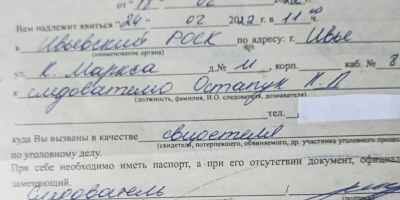 от "
Вам надлежит явиться "24" 02 2022 г. в 11 00
в Ивьевский РОСК по адресу: г. Ивье
(наименование органа)
ул. К. Маркса д. № 11, корп. каб. № 8
к следователю Остапук
(должность, фамилия, И.О. следователя, дознавателя)
тел:
куда Вы вызваны в качестве свидетеля
(свидетеля, потерпевшего, обвиняемого, др. участника уголовного
по уголовному делу.
При себе необходимо иметь паспорт, а при его отсутствии документ,
заменяющий.
Следователь